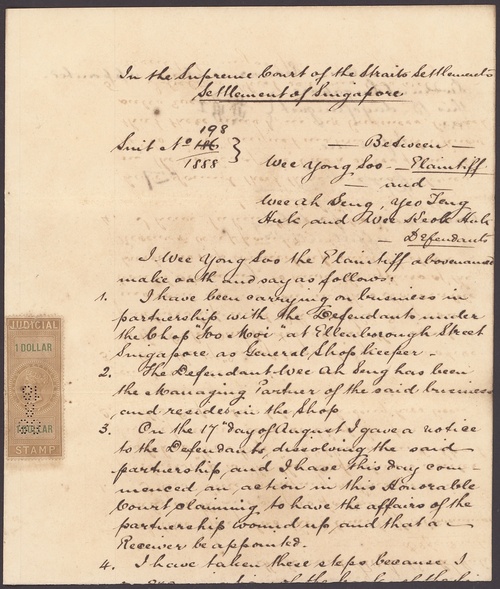 In the Supreme Court of the Straits Settlements
Settlement of Singapore
198
Suit No 186
1888
— Between —
Wee Yong Soo — Plaintiff
— and —
Wee Ah Seng, Yeo Teng
Hule and Wee Keok Hule
— Defendants
I Wee Yong Soo the Plaintiff abovenamed
make oath and say as follows:
1. I have been carrying on business in
partnership with the Defendants under
the Chop "Soo Moi" at Ellenborough Street
Singapore as General Shop keeper.
2. The Defendant Wee Ah Seng has been
the Managing Partner of the said business
and resides in the Shop
3. On the 17th day of August I gave a notice
to the Defendants dissolving the said
partnership, and I have this day com-
menced an action in this Honorable
Court claiming to have the affairs of the
partnership wound up, and that a
Receiver be appointed.
4. I have taken these steps because I
JUDICIAL
1 DOLLAR
STAMP